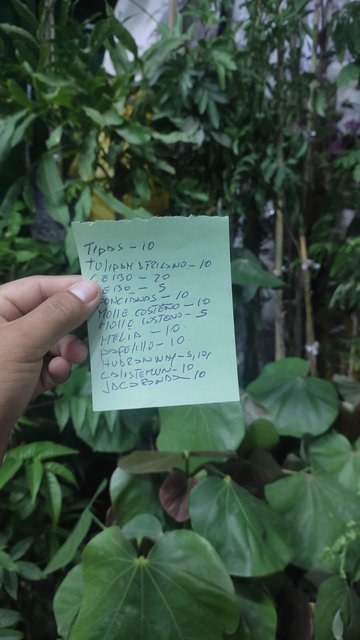 TIPAS - 10
TULIPAN AFRICANO - 10
CEIBO - 20
CEIBO - 5
PONCIANAS - 10
MOLLE COSTEÑO - 10
MOLLE COSTEÑO - 5
MELIA - 10
PAPELILLO - 10
- 5, 10,
CALISTEMUN - 10
JACARANDA - 10